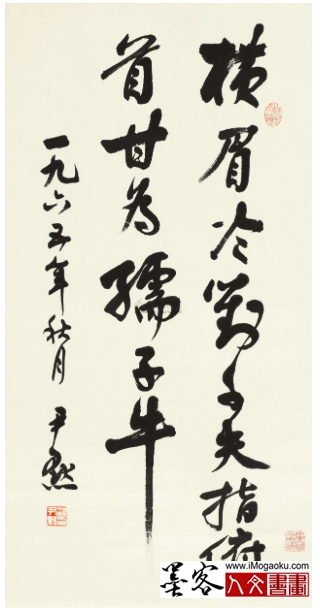 横眉冷對千夫指俯
首甘為孺子牛
一九六五年秋月 尹默
www.iMogaoku.com
墨客人文書畫